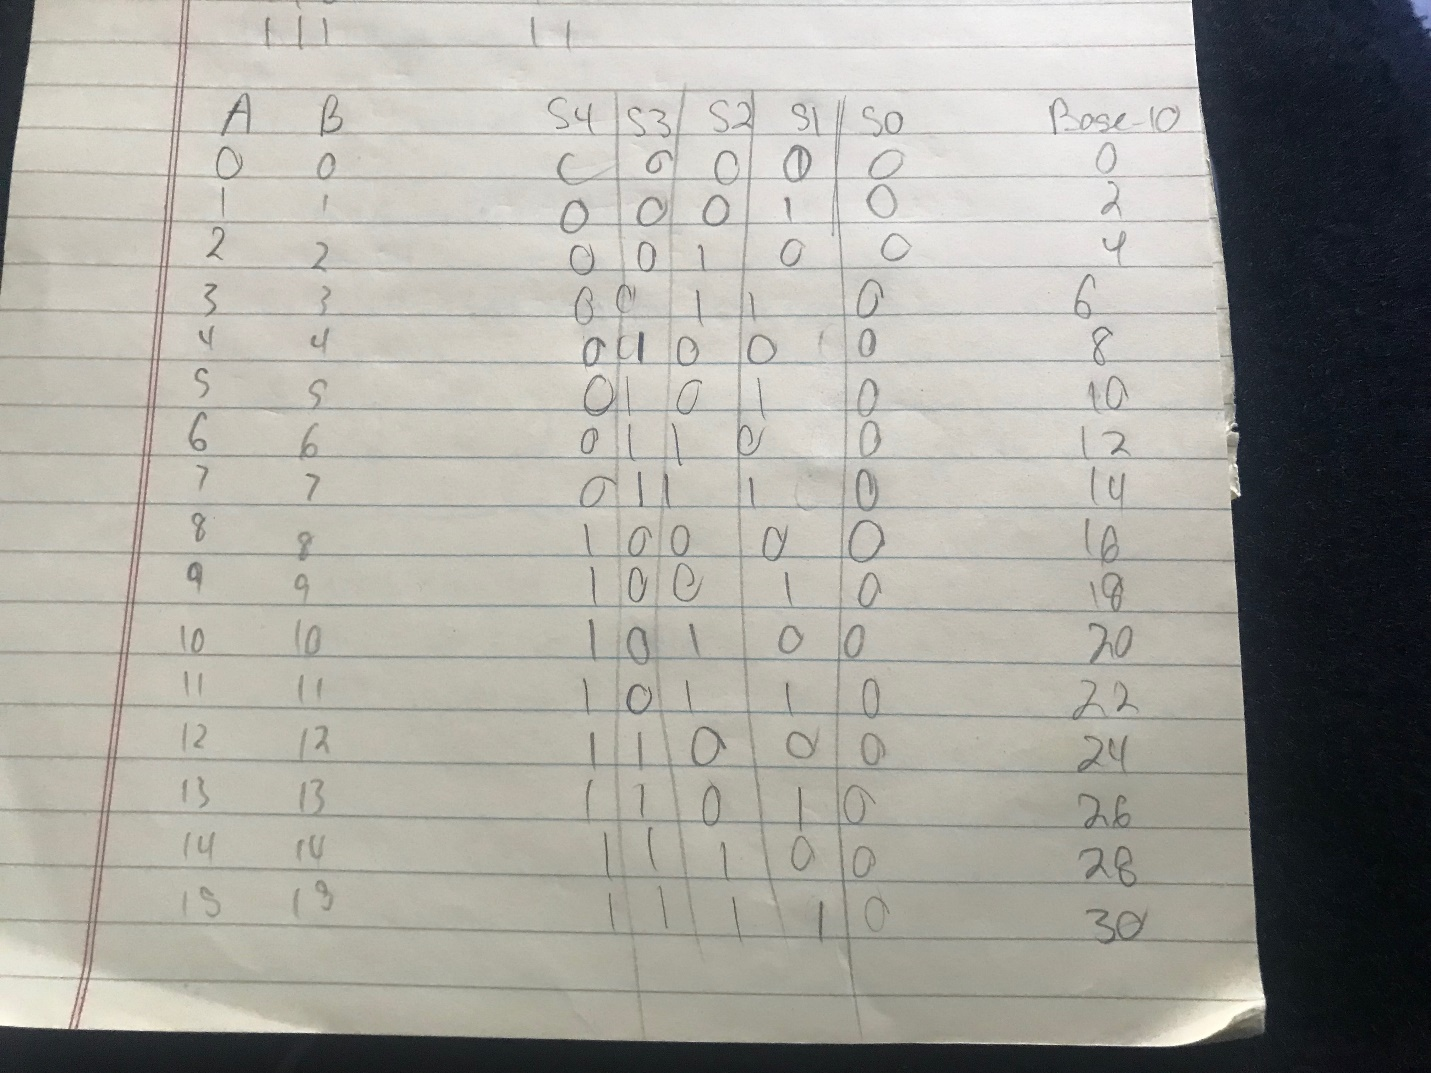 111 11
A B S4 S3 S2 S1 S0 Base-10
0 0 0 0 0 0 0 0
1 1 0 0 0 1 0 2
2 2 0 0 1 0 0 4
3 3 0 0 1 1 0 6
4 4 0 1 0 0 0 8
5 5 0 1 0 1 0 10
6 6 0 1 1 0 0 12
7 7 0 1 1 1 0 14
8 8 1 0 0 0 0 16
9 9 1 0 0 1 0 18
10 10 1 0 1 0 0 20
11 11 1 0 1 1 0 22
12 12 1 1 0 0 0 24
13 13 1 1 0 1 0 26
14 14 1 1 1 0 0 28
15 15 1 1 1 1 0 30